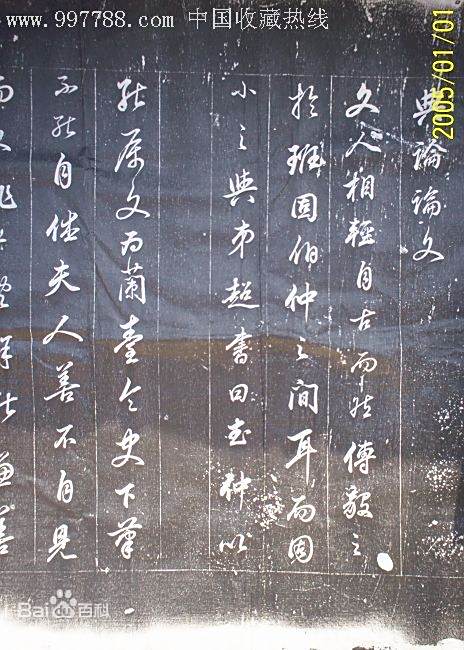 www.997788.com 中国收藏热线
2005/01/01
典論論文
文人相輕自古而然傅毅之
於班固伯仲之間耳而固
小之與弟超書曰武仲以
能屬文为蘭臺令史下筆
不能自休夫人善不自見
而文非一體鮮能備善
Bai百科